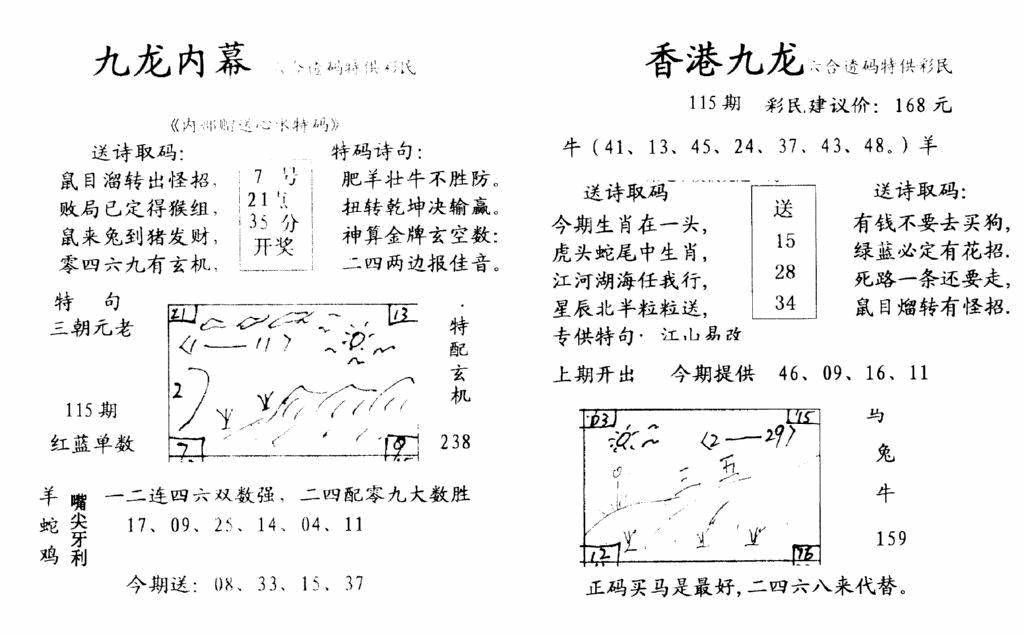 九龙内幕
六合透码特供彩民
《内部赠送心水特码》
送诗取码:
鼠目溜转出怪招,
败局已定得猴组,
鼠来兔到猪发财,
零四六九有玄机,
7 号
21
35 分
开奖
特码诗句:
肥羊壮牛不胜防。
扭转乾坤决输赢。
神算金牌玄空数:
二四两边报佳音。
特 句
三朝元老
115期
红蓝单数
21
13
2
7
9
特配玄机
238
羊
蛇
鸡
嘴尖牙利
一二连四六双数强, 二四配零九大数胜
17、09、25、14、04、11
今期送: 08、33、15、37
香港九龙
六合透码特供彩民
115期 彩民建议价: 168元
牛 (41、13、45、24、37、43、48。) 羊
送诗取码
今期生肖在一头,
虎头蛇尾中生肖,
江河湖海任我行,
星辰北半粒粒送,
专供特句: 江山易改
送
15
28
34
送诗取码:
有钱不要去买狗,
绿蓝必定有花招.
死路一条还要走,
鼠目熘转有怪招.
上期开出 今期提供 46、09、16、11
03
15
〈2——29〉
三 五
12
马
兔
牛
159
正码买马是最好,二四六八来代替。